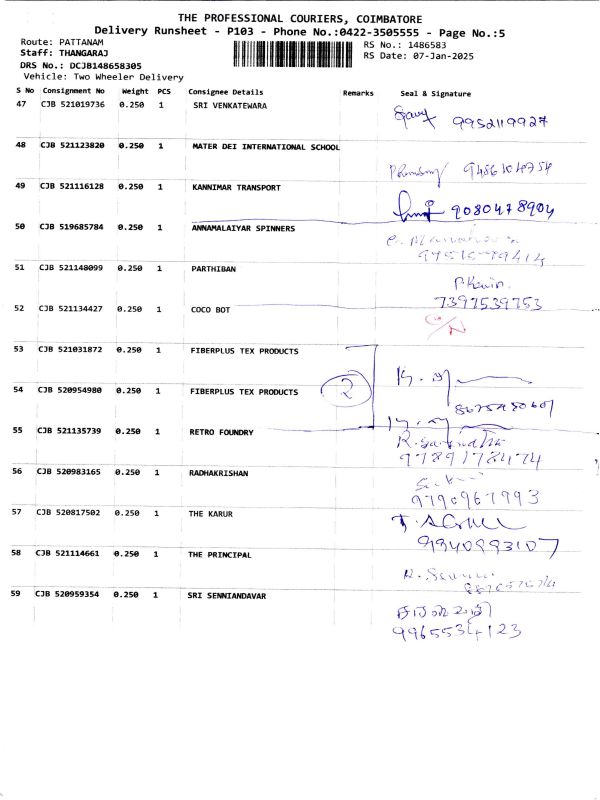 THE PROFESSIONAL COURIERS, COIMBATORE
Delivery Runsheet - P103 - Phone No.:0422-3505555 - Page No.:5
Route: PATTANAM RS No.: 1486583
Staff: THANGARAJ RS Date: 07-Jan-2025
DRS No.: DCJB148658305
Vehicle: Two Wheeler Delivery
S No Consignment No Weight PCS Consignee Details Remarks Seal & Signature
47 CJB 521019736 0.250 1 SRI VENKATEWARA
9952119927
48 CJB 521123820 0.250 1 MATER DEI INTERNATIONAL SCHOOL
49 CJB 521116128 0.250 1 KANNIMAR TRANSPORT
9080478904
50 CJB 519685784 0.250 1 ANNAMALAIYAR SPINNERS
51 CJB 521148099 0.250 1 PARTHIBAN
7397539753
52 CJB 521134427 0.250 1 COCO BOT
53 CJB 521031872 0.250 1 FIBERPLUS TEX PRODUCTS
54 CJB 520954980 0.250 1 FIBERPLUS TEX PRODUCTS 2
55 CJB 521135739 0.250 1 RETRO FOUNDRY
9789178474
56 CJB 520983165 0.250 1 RADHAKRISHAN
9790967993
57 CJB 520817502 0.250 1 THE KARUR
9340993107
58 CJB 521114661 0.250 1 THE PRINCIPAL
59 CJB 520959354 0.250 1 SRI SENNIANDAVAR
9965534123